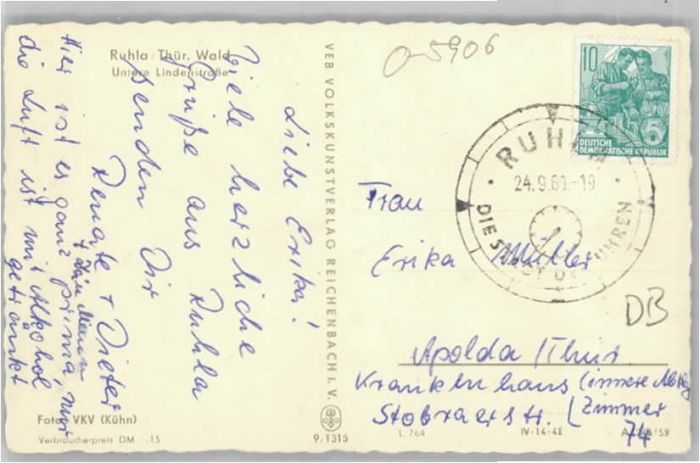 Ruhla / Thür. Wald
Untere Lindenstraße
Liebe Erika!
Viele herzliche
Grüße aus Ruhla
senden Dir
Renate + Dieter
Hier ist es ganz prima, nur
die Luft ist mit Alkohol
getränkt
Foto: VKV (Kühn)
Verbraucherpreis DM -.15
VEB VOLKSKUNSTVERLAG REICHENBACH I. V.
9,1315
0-5906
10
5
DEUTSCHE
DEMOKRATISCHE REPUBLIK
RUHLA
24.9.60.-19
DIE STADT DER UHREN
Frau
Erika Müller
DB
Apolda / Thür.
Krankenhaus (innere
Stobraerstr. (Zimmer
74
L 764
IV-14-48